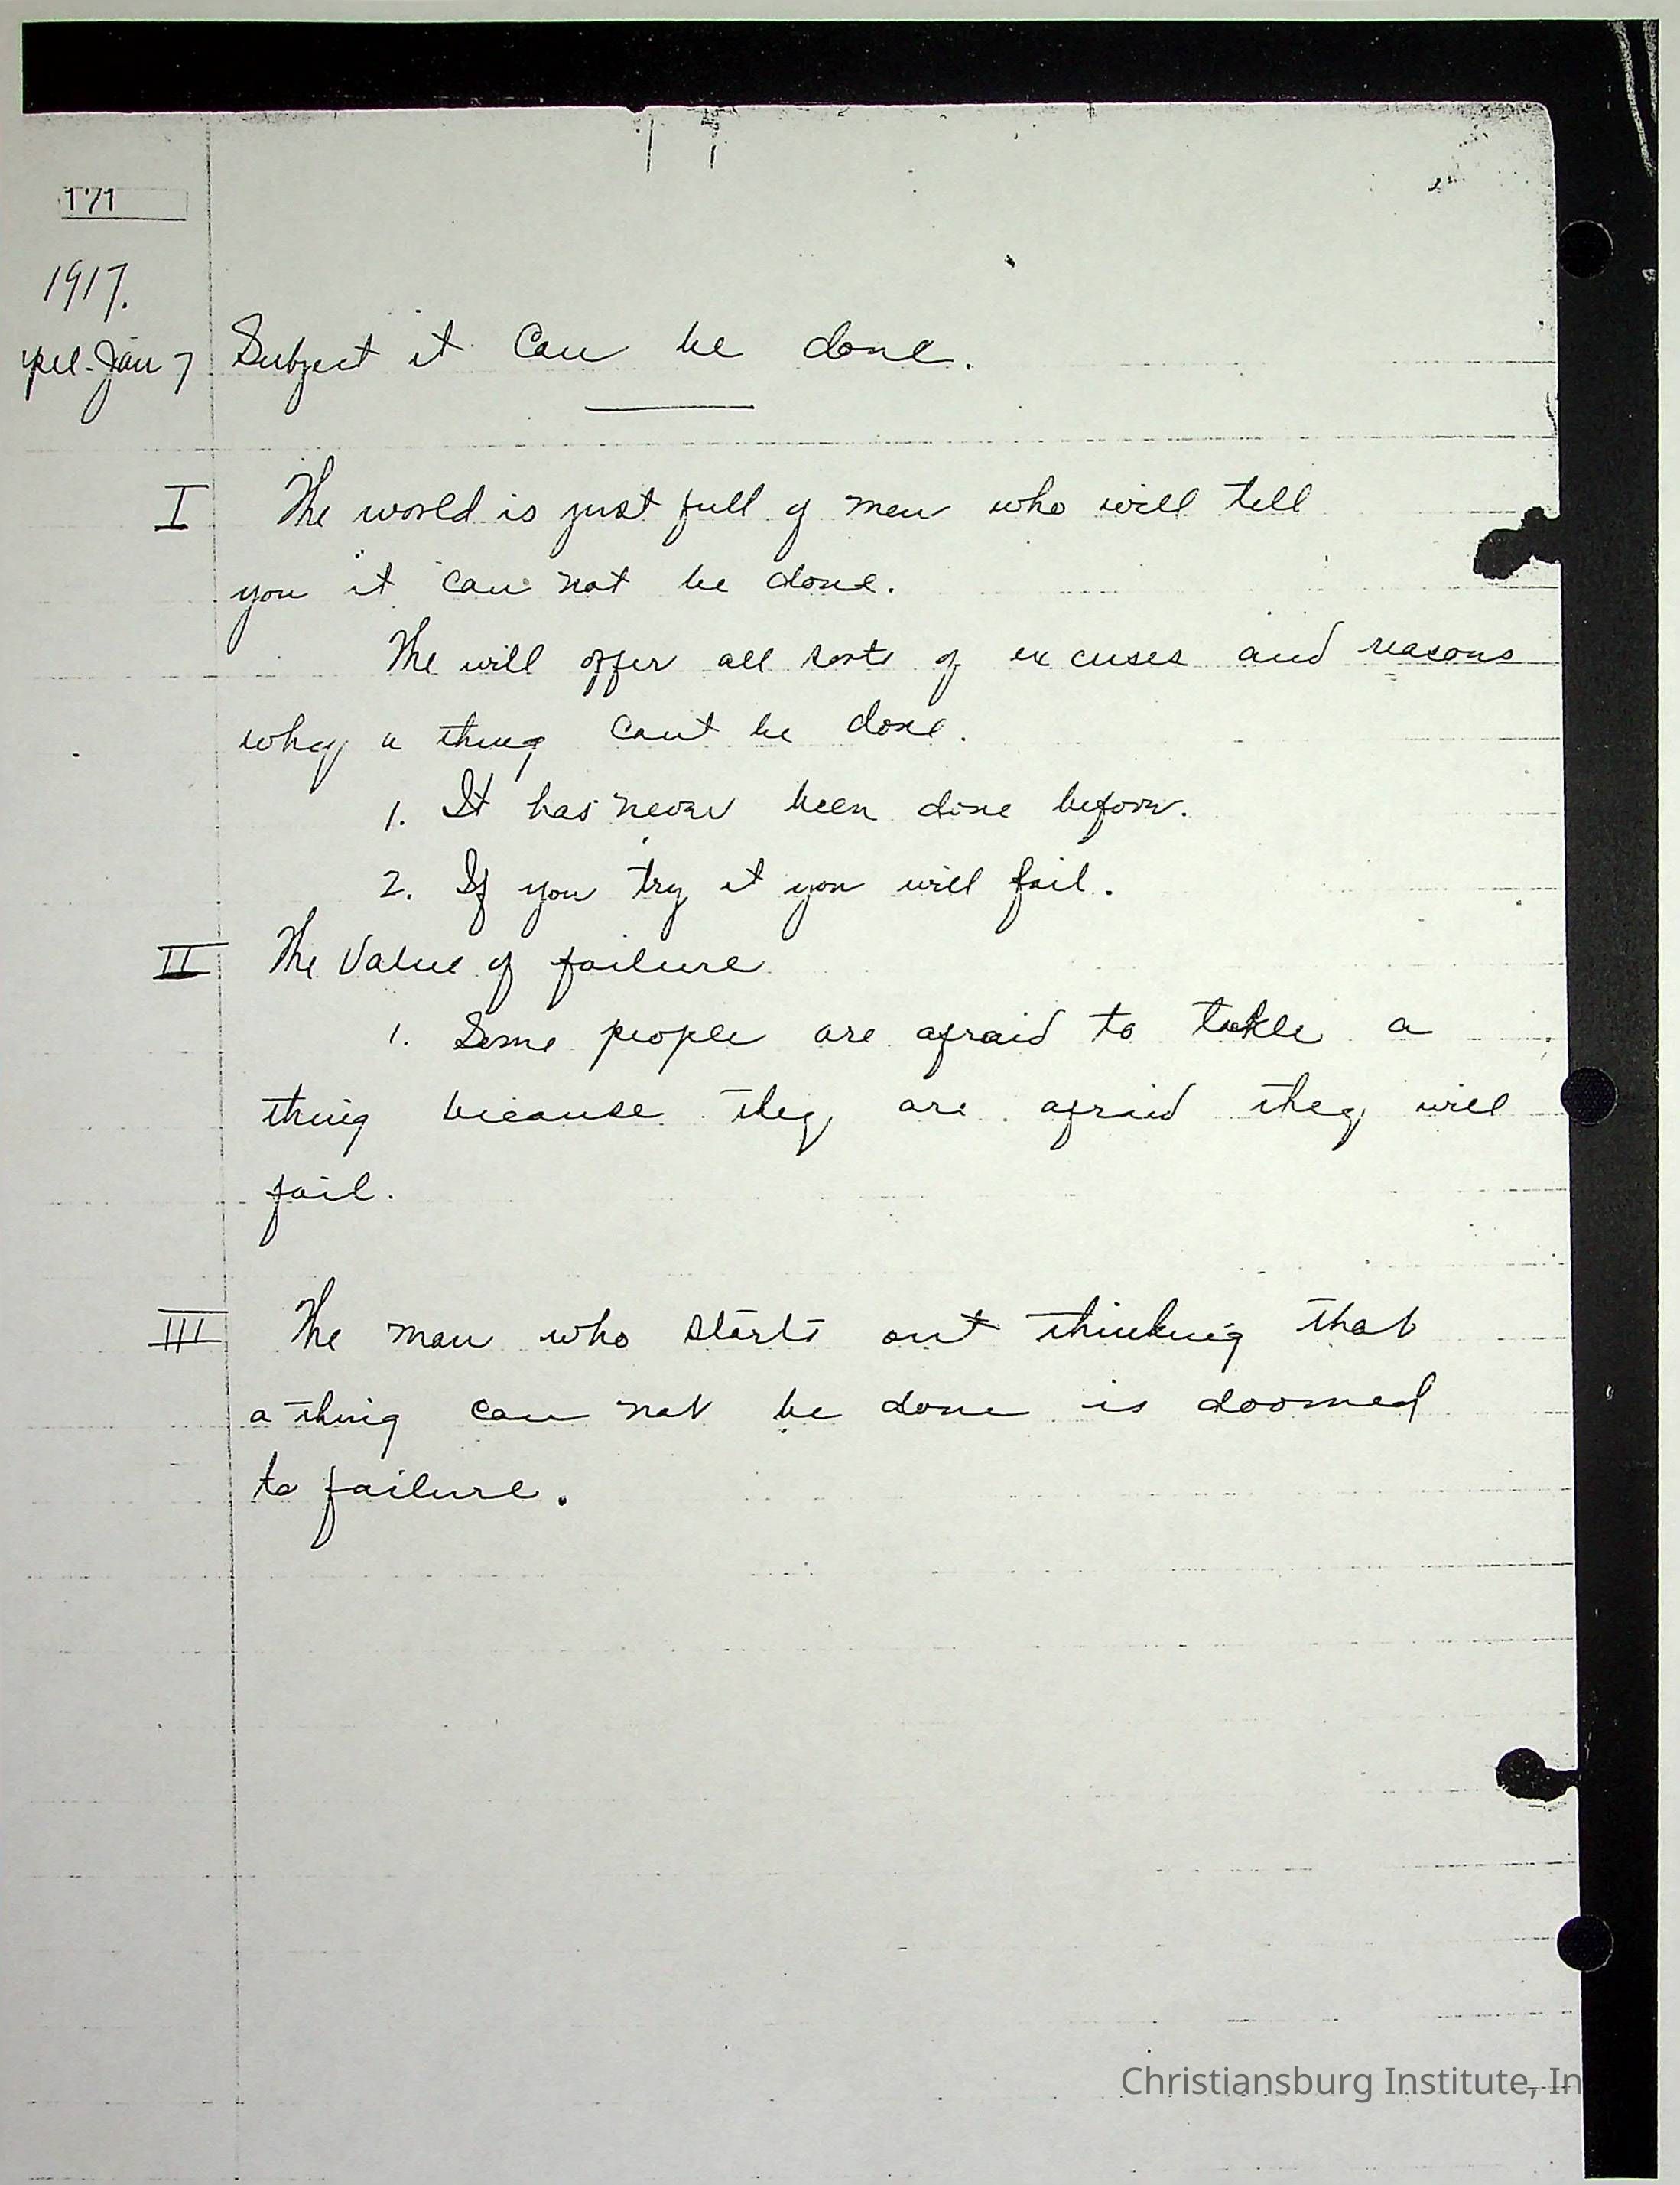 171
1917.
Jan 7 Subject it Can be done.
I The world is just full of men who will tell
you it can not be done.
The will offer all sorts of excuses and reasons
why a thing cant be done.
1. It has never been done before.
2. If you try it you will fail.
II The Value of failure
1. Some people are afraid to takle a
thing because they are afraid they will
fail.
III The man who starts out thinking that
a thing can not be done is doomed
to failure.
Christiansburg Institute, In